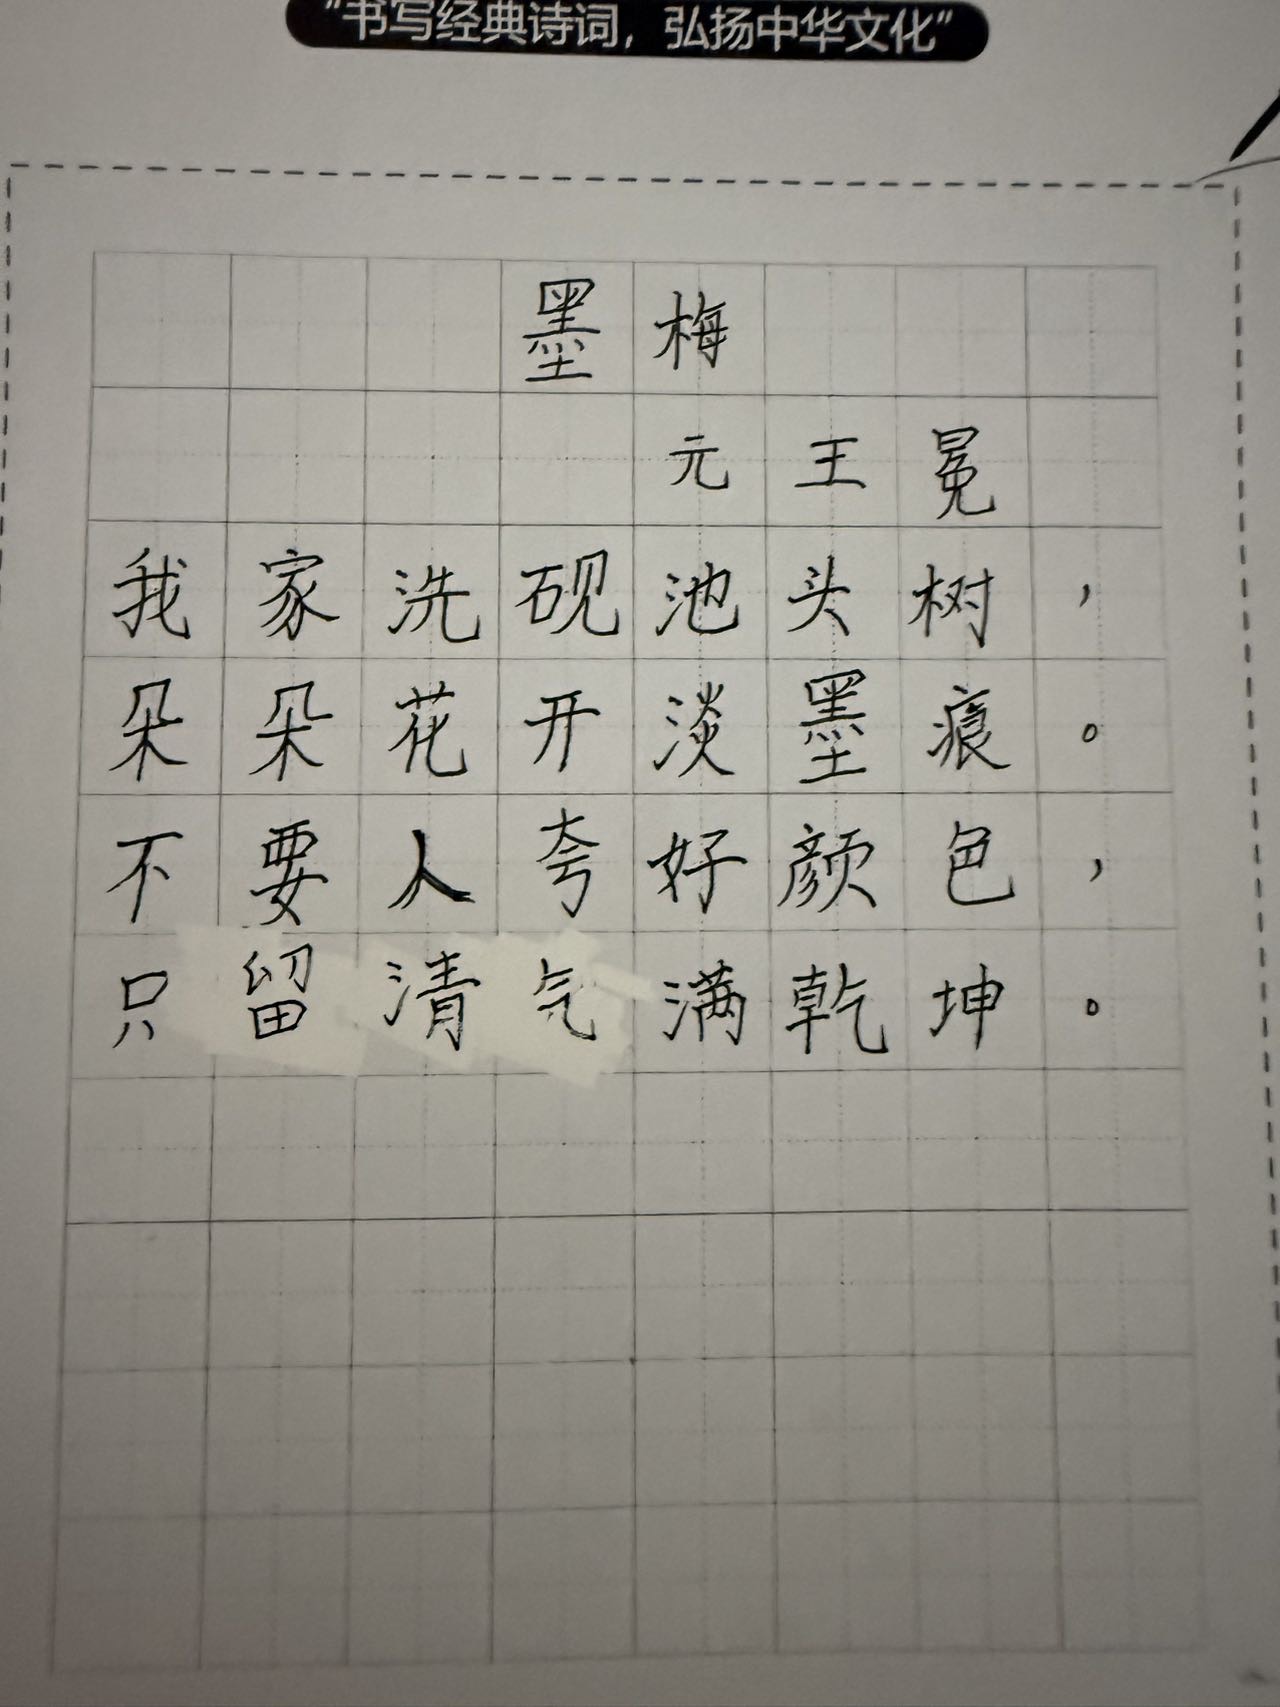 “书写经典诗词，弘扬中华文化”
墨梅
元王冕
我家洗砚池头树，
朵朵花开淡墨痕。
不要人夸好颜色，
只留清气满乾坤。